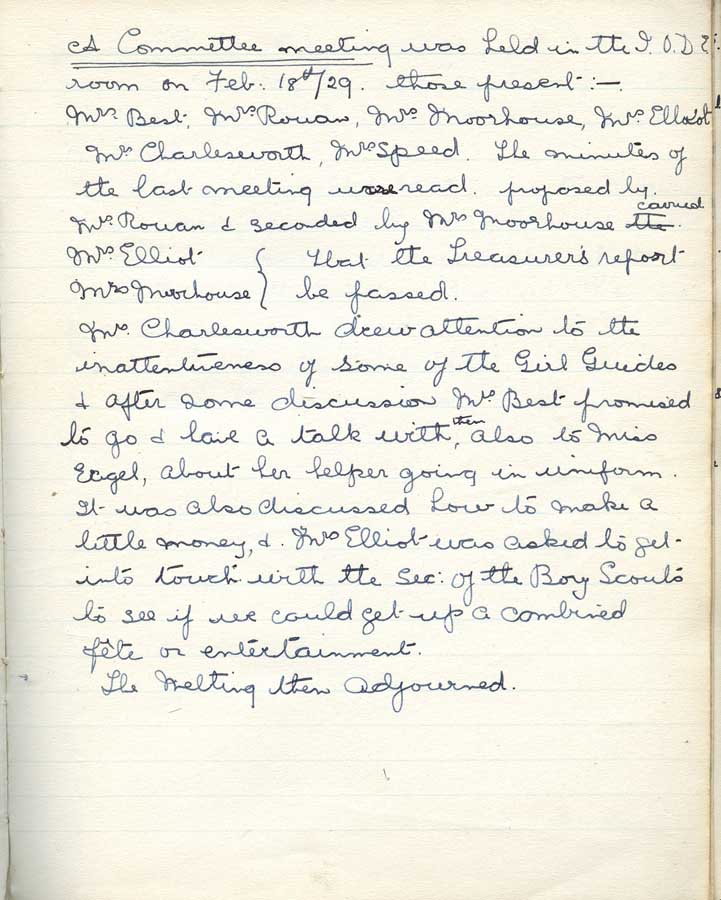 A Committee meeting was held in the I.O.D.E.
room on Feb. 18th/29. those present :-
Mrs Best, Mrs Rouan, Mrs Moorhouse, Mrs Elloiot
Mrs Charlesworth, Mrs Speed. The minutes of
the last meeting were read. proposed by
Mrs Rouan & seconded by Mrs Moorhouse the carried.
Mrs Elliot { that the Treasurer's report
Mrs Moorhouse } be passed.
Mrs. Charlesworth drew attention to the
inattentiveness of some of the Girl Guides
& after some discussion Mrs Best promised
to go & have a talk with, then also to Miss
Engel, about her helper going in uniform.
It was also discussed how to make a
little money, &. Mrs Elliot was asked to get
into touch with the sec: of the Boy Scouts
to see if we could get up a combined
fête or entertainment.
The Meeting then adjourned.